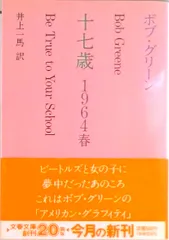 ボブ・グリーン
十七歳 1964春
Bob Greene
Be True to Your School
井上一馬 訳
ビートルズと女の子に
夢中だったあのころ
これはボブ・グリーンの
「アメリカン・グラフィティ」
文春文庫創刊20周年・今月の新刊